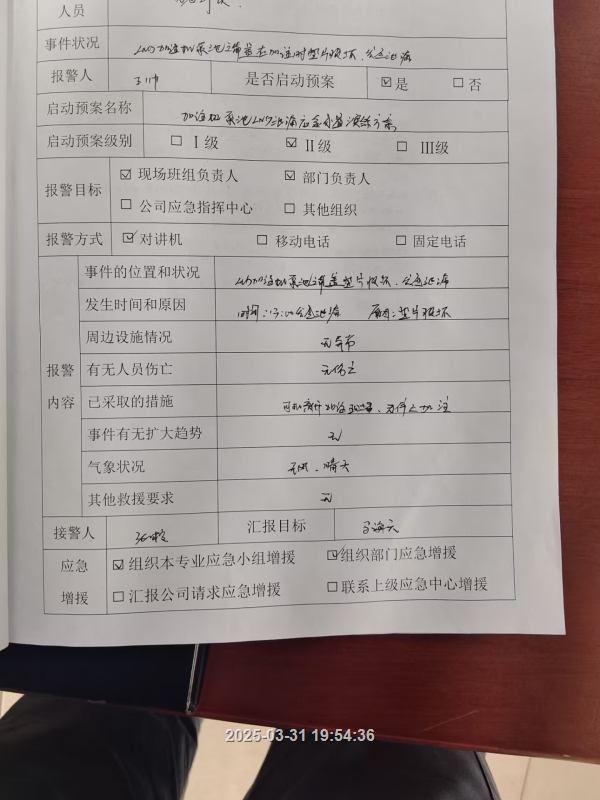 人员
事件状况 LNG加注机泵池顶盖在加注时垫片损坏、发生泄漏
报警人 王帅 是否启动预案 ☑是 □否
启动预案名称 加注机泵池LNG泄漏应急处置演练方案
启动预案级别 □Ⅰ级 ☑Ⅱ级 □Ⅲ级
报警目标 ☑现场班组负责人 ☑部门负责人
□公司应急指挥中心 □其他组织
报警方式 ☑对讲机 □移动电话 □固定电话
报警内容
事件的位置和状况 LNG加注机泵池顶盖垫片损坏、发生泄漏
发生时间和原因 时间:17:00发生泄漏 原因:垫片损坏
周边设施情况 无异常
有无人员伤亡 无伤亡
已采取的措施 停止加注
事件有无扩大趋势 无
气象状况 无风、晴天
其他救援要求 无
接警人 汇报目标
应急增援 ☑组织本专业应急小组增援 ☑组织部门应急增援
□汇报公司请求应急增援 □联系上级应急中心增援
2025-03-31 19:54:36